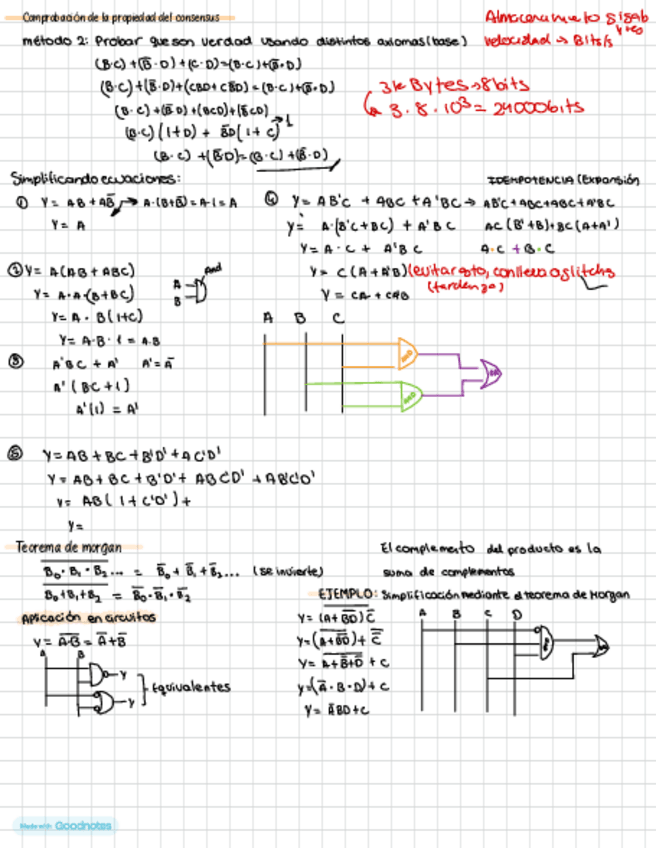 Comprobación de la propiedad del consensus
Almacenamiento
velocidad → Bits/s
método 2: Probar que son verdad usando distintos axiomas (base)
(B·C) + (B̅·D) + (C·D) = (B·C) + (B̅·D)
(B·C) + (B̅·D) + (CBD + CB̅D) = (B·C) + (B̅·D)
(B·C) + (B̅D) + (BCD) + (B̅CD)
(B·C) (1+D) + B̅D (1+C) → 1
(B·C) + (B̅D) = (B·C) + (B̅·D)
3k Bytes → 8bits
3·8·10³ = 24000bits
Simplificando ecuaciones:
① Y = AB + AB̅ → A·(B+B̅) = A·1 = A
Y = A
② Y = A(AB + ABC)
Y = A·A·(B+BC)
Y = A·B(1+C)
Y = A·B·1 = A·B
And
A
B
③ A'BC + A' A' = A̅
A'(BC+1)
A'(1) = A'
④ Y = AB'C + ABC + A'BC →
Y = A·(B'C+BC) + A'BC
Y = A·C + A'BC
Y = C(A+A'B) (evitar esto, conlleva a glitchs
(tardanza)
Y = CA + CB
IDEMPOTENCIA (Expansión
AB'C+ABC+ABC+A'BC
AC(B'+B)+BC(A+A')
A·C + B·C
A B C
AND
AND
OR
⑤ Y = AB + BC + B'D' + AC'D'
Y = AB + BC + B'D' + ABC'D' + AB'C'D'
Y = AB(1 + C'D') +
Y =
Teorema de morgan
B₀·B₁·B₂... = B̅₀ + B̅₁ + B̅₂... (se invierte)
B₀+B₁+B₂ = B̅₀·B̅₁·B̅₂
El complemento del producto es la
suma de complementos
Aplicación en circuitos
Y = A̅·̅B̅ = A̅+B̅
A B
Y
Y
Equivalentes
EJEMPLO: Simplificación mediante el teorema de Morgan
Y = (A+B̅D̅)C̅
Y = (A+B̅D̅) + C̿
Y = A+B̅+D̅ + C
Y = (A̅·B·D) + C
Y = A̅BD+C
A B C D
Made with Goodnotes